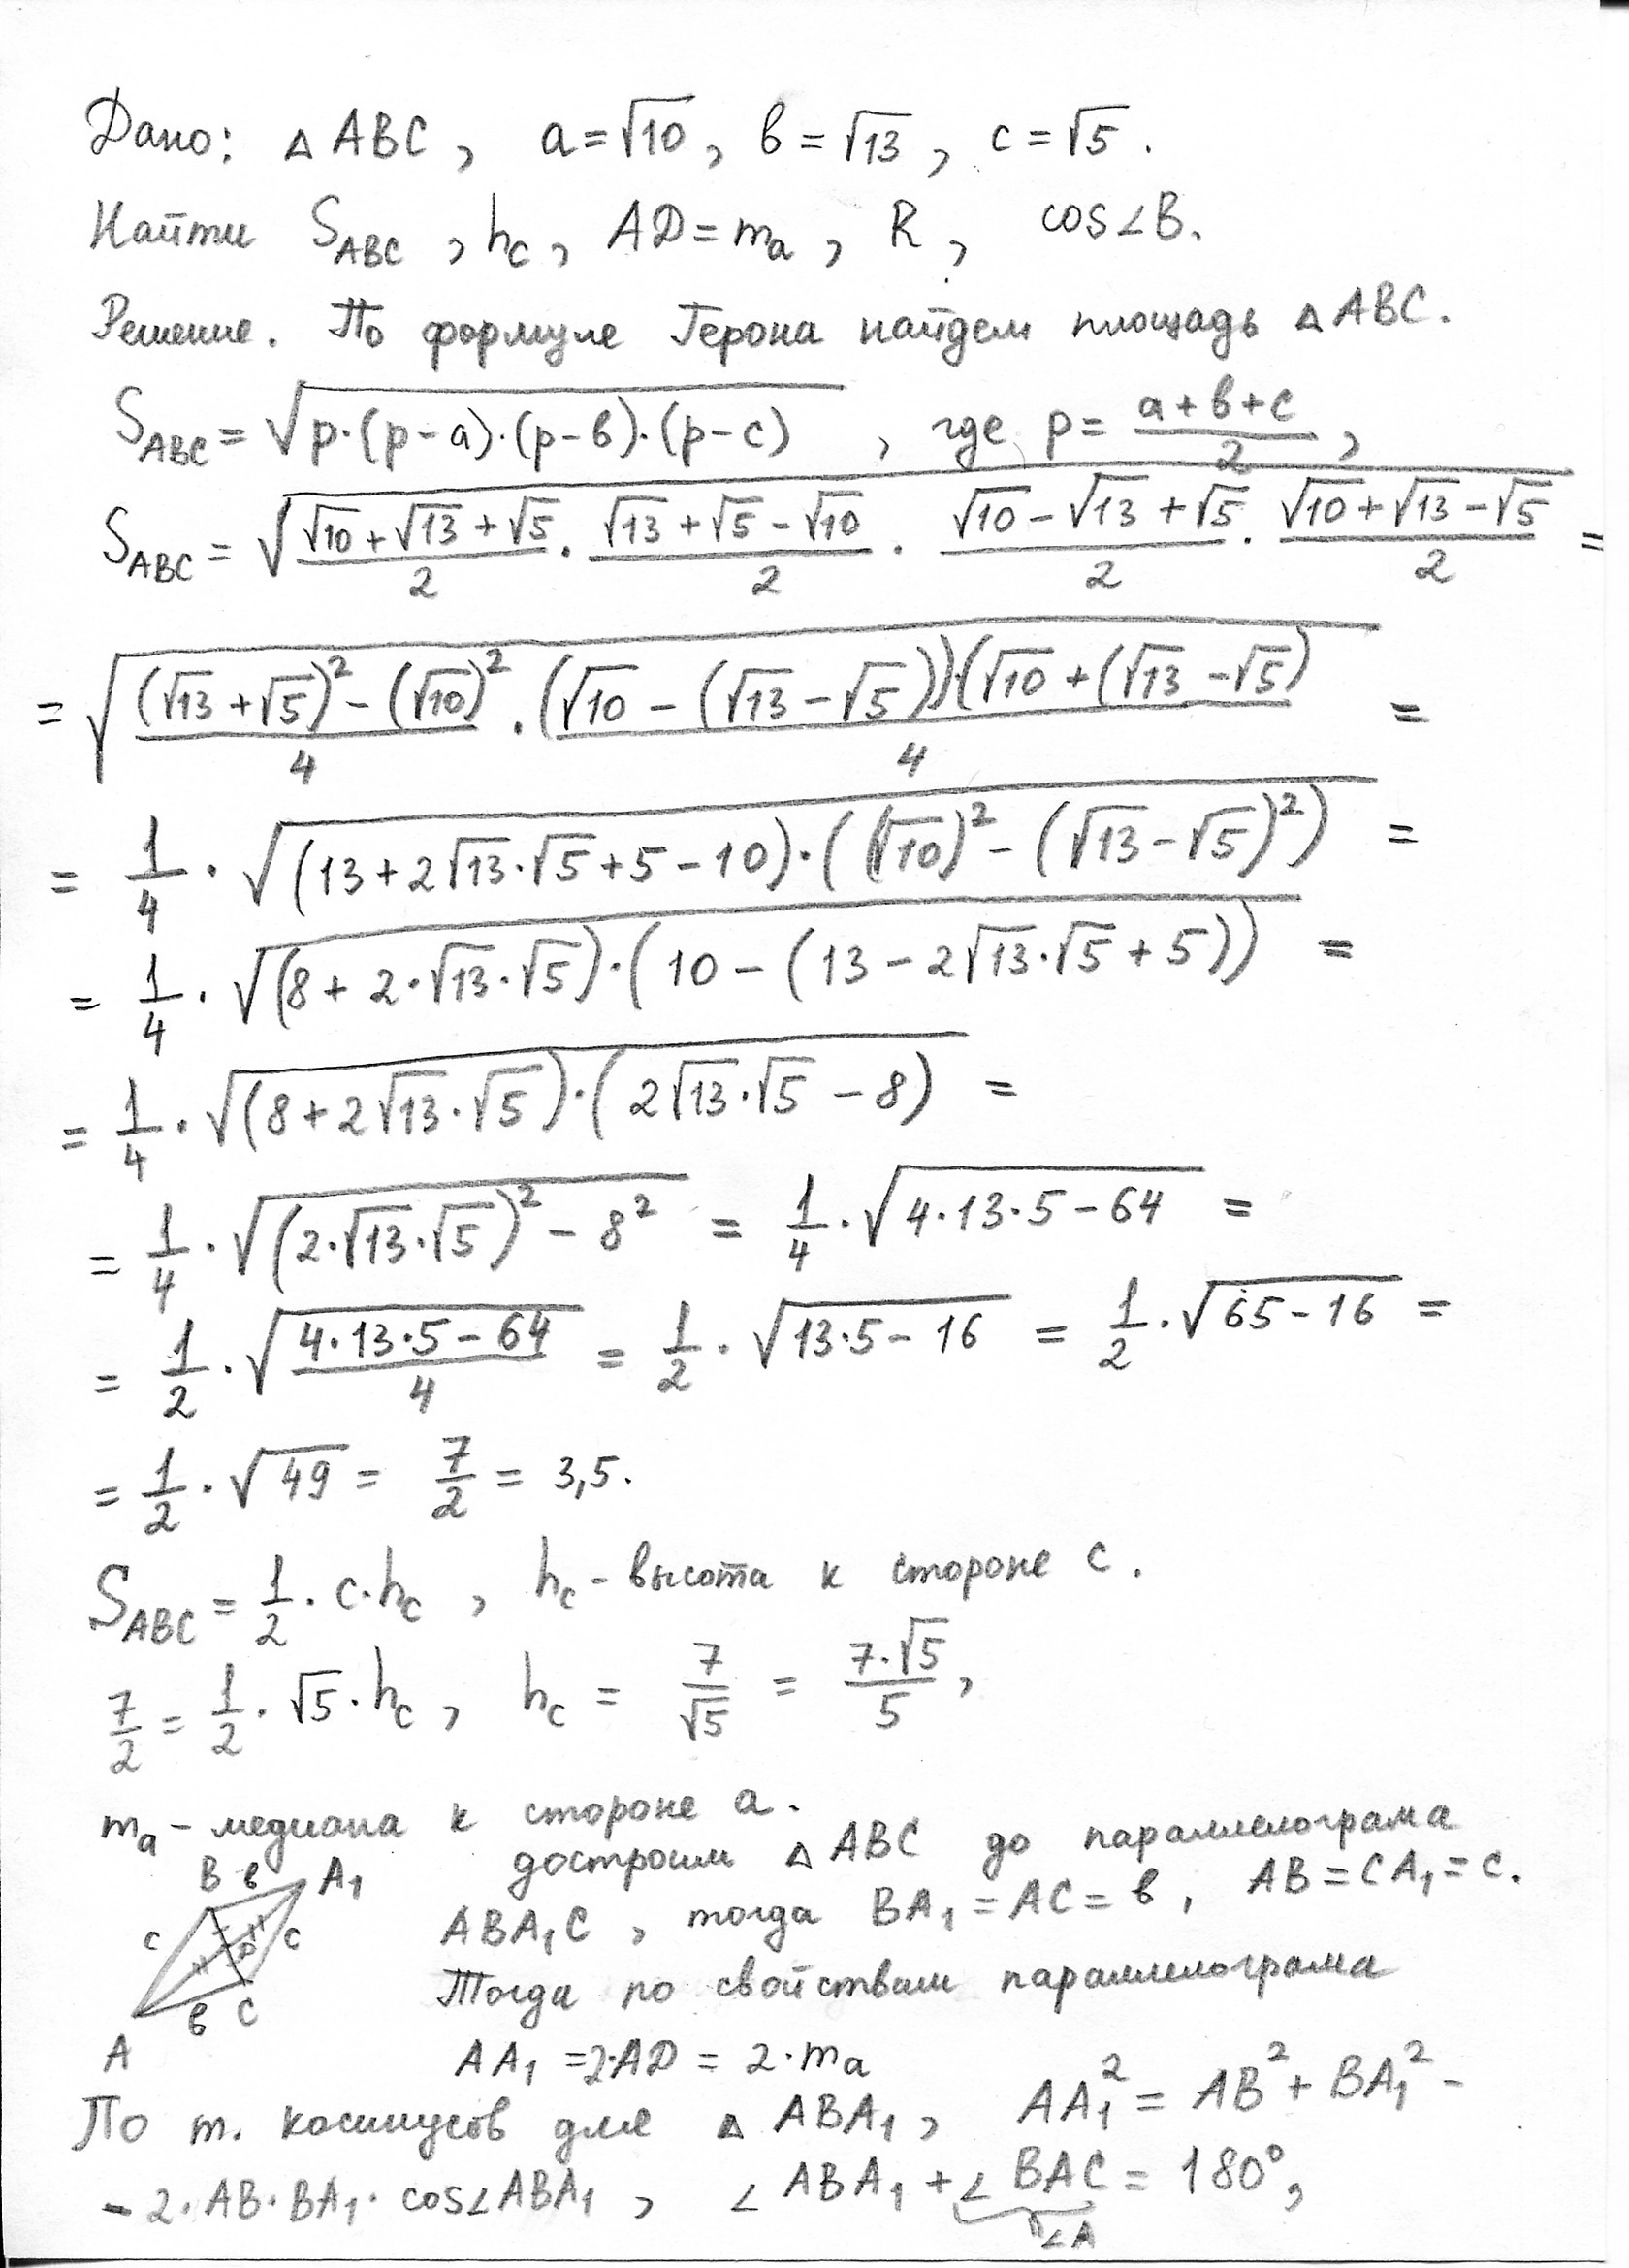 Дано: △ ABC, a=√10, b=√13, c=√5.
Найти S_ABC, h_c, AD=m_a, R, cos∠B.
Решение. По формуле Герона найдем площадь △ ABC.
S_ABC = √(p·(p-a)·(p-b)·(p-c)), где p = (a+b+c)/2,
S_ABC = √((√10+√13+√5)/2 · (√13+√5-√10)/2 · (√10-√13+√5)/2 · (√10+√13-√5)/2) =
= √(((√13+√5)²-(√10)²)/4 · (√10-(√13-√5))·(√10+(√13-√5)/4) =
= 1/4 · √((13+2√13·√5+5-10)·((√10)²-(√13-√5)²)) =
= 1/4 · √((8+2·√13·√5)·(10-(13-2√13·√5+5))) =
= 1/4 · √((8+2√13·√5)·(2√13·√5-8) =
= 1/4 · √((2·√13·√5)²-8²) = 1/4 · √(4·13·5-64) =
= 1/2 · √((4·13·5-64)/4) = 1/2 · √(13·5-16) = 1/2 · √(65-16) =
= 1/2 · √49 = 7/2 = 3,5.
S_ABC = 1/2 · c·h_c, h_c - высота к стороне c.
7/2 = 1/2 · √5·h_c, h_c = 7/√5 = 7·√5/5,
m_a - медиана к стороне a.
достроим △ ABC до параллелограма
B b A₁
ABA₁C, тогда BA₁=AC=b, AB=CA₁=c.
c D c
Тогда по свойствам параллелограма
b C
A
AA₁=2·AD=2·m_a
По т. косинусов для △ ABA₁, AA₁²=AB²+BA₁²-
-2·AB·BA₁·cos∠ABA₁, ∠ABA₁+∠BAC=180°,
∠A